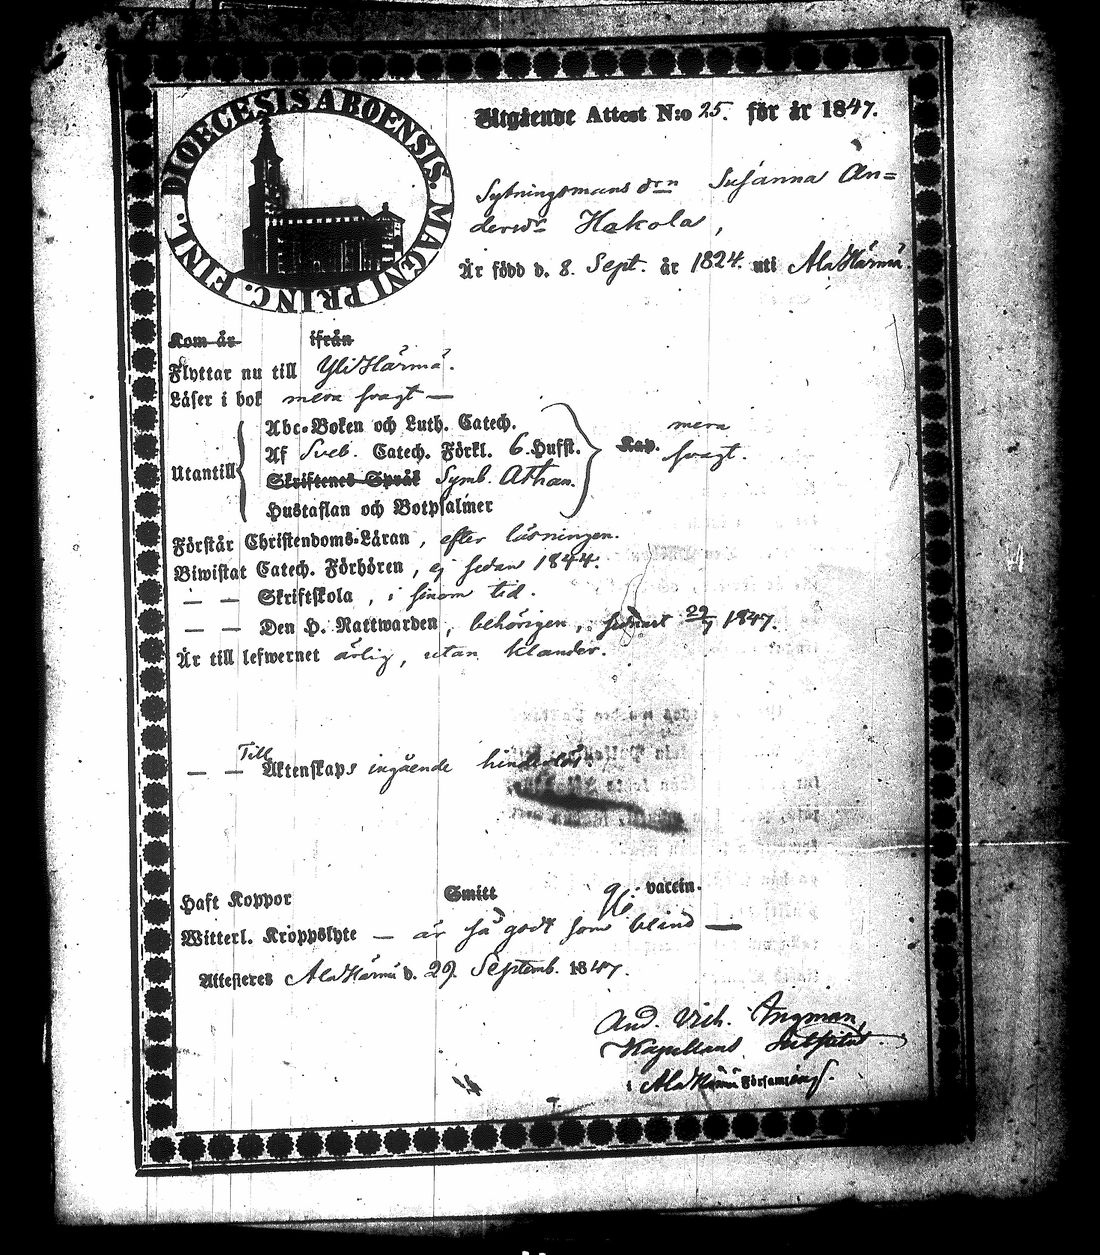 DIOECESIS ABOENSIS. MAGNI PRINC. FINL.
Utgående Attest N:o 25. för år 1847.
Sytningsmans drn Susanna An=
dersdr Hakola,
Är född d. 8. Sept. år 1824. uti AlaHärmä.
Kom år ifrån
Flyttar nu till YliHärmä.
Läser i bok mera svagt —
Utantill
Abc-Boken och Luth. Catech.
Af Sveb. Catech. Förkl. 6. Hufst.
Skriftenes Språk Symb. Athan.
Hustaflan och Botpsalmer
Kap. mera
svagt.
Förstår Christendoms-Läran, efter läsningen.
Biwistat Catech. Förhören, ej sedan 1844.
— — Skriftskola, i sinom tid.
— — Den H. Nattwarden, behörigen, senast 29/7 1847.
Är till lefwernet ärlig, utan klander.
— — Till Äktenskaps ingående hinderlös.
Haft Koppor Smitt varein.
Witterl. Kroppslyte — är så godt som blind —
Attesteres AlaHärmä d. 29. Septemb. 1847.
And. Vilh. Ingman,
Kapellans Substitut
i AlaHärmä Församling.